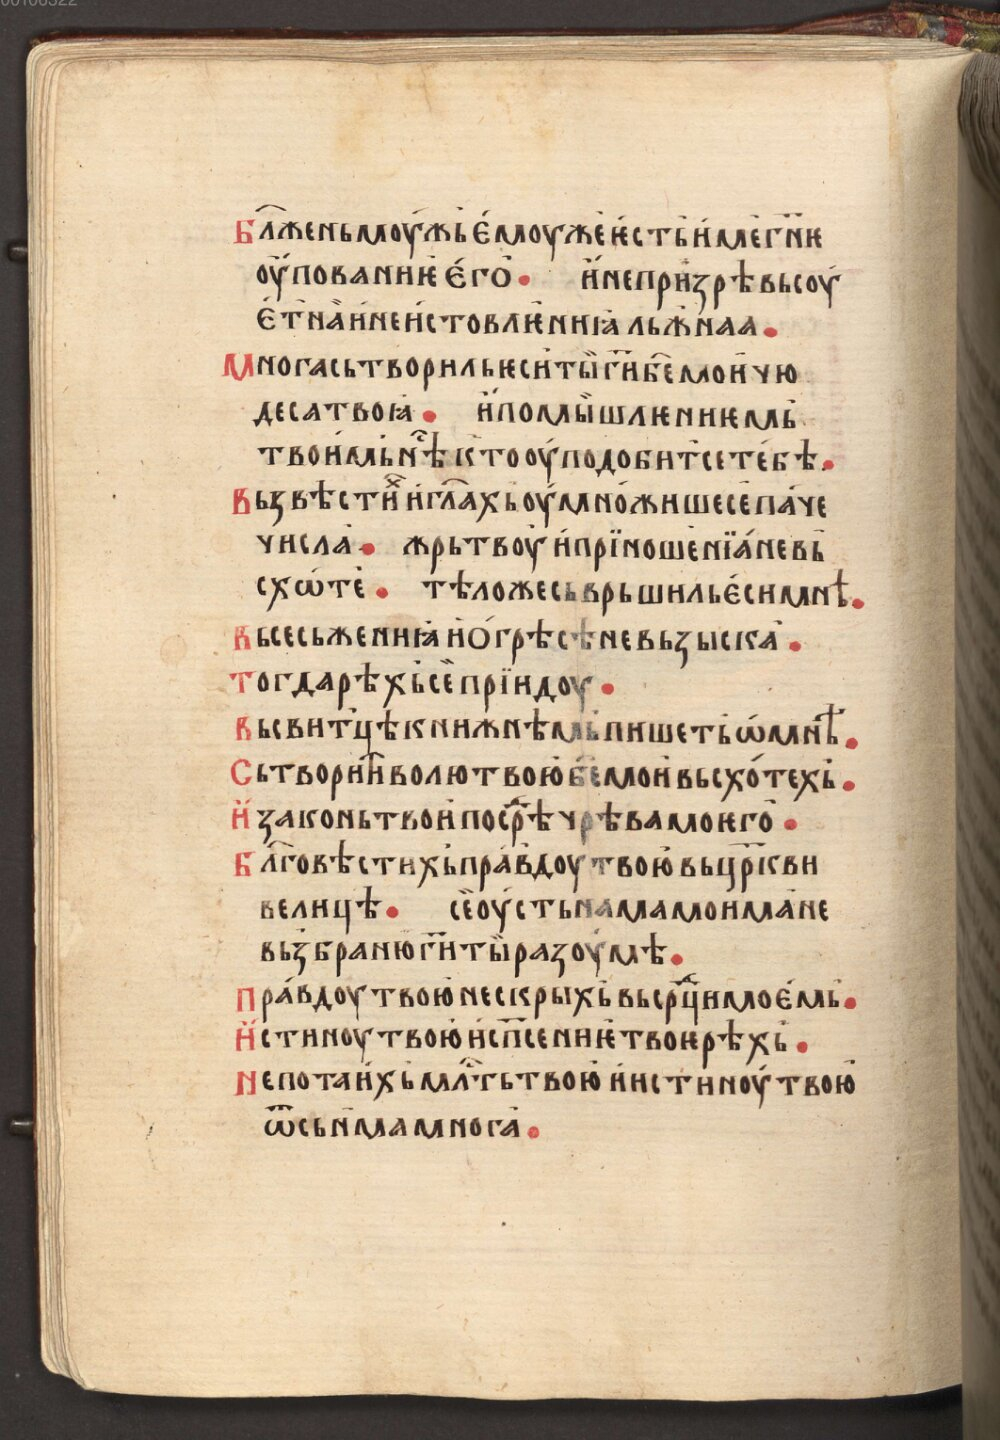 Бл҃жень моу́жь е́моуже ѥ́сть и́ме гн҃ѥ
оу҆пованиѥ е́го. и҆ не призрѣ вь соу́
е́тна̀ и́ неи́стовлѥниꙗ льжнаа.
Многа сьтворилъ ѥси ты̀ ги҃ бе҃ мои чю
деса твоꙗ. и҆ помы̀шлѥниѥмь
твои́мь нⷭ҇ѣ кто оу҆подобит се те́бѣ.
Вьзвѣстихⷯ и гл҃ахь оу҆мно́жише се па́че
числа. жрьтвоу и́ прїношенїа́ не вь
схѡ́те. тѣло же сьврьшиль е́си мнѣ.
Вьсесьжениꙗ и ѻ грѣсѣ не вьзыска.
Тогда рѣхь се̏ прїидоу.
Вь свитцѣ книжнѣмь пишеть ѡ́ мнѣ.
Сьтворити волю твою бе҃ мои вьсхо́техь.
И҆ законь твои посрⷣѣ чрѣва моѥго.
Бл҃говѣстихь пра́вдоу твою вь цр҃кви
велицѣ. се̏ оу҆стьнама моима не
вьзбраню ги҃ ты̀ разоумѣ.
Пра́вдоу твою не скрыхь вь срⷣци мое́мь.
И҆стиноу твою и́ сп҃сениѥ твоѥ рѣхь.
Не потаи́хь млⷭ҇ть твою и́ истиноу́ твою
ѿ сьн́ма многа.